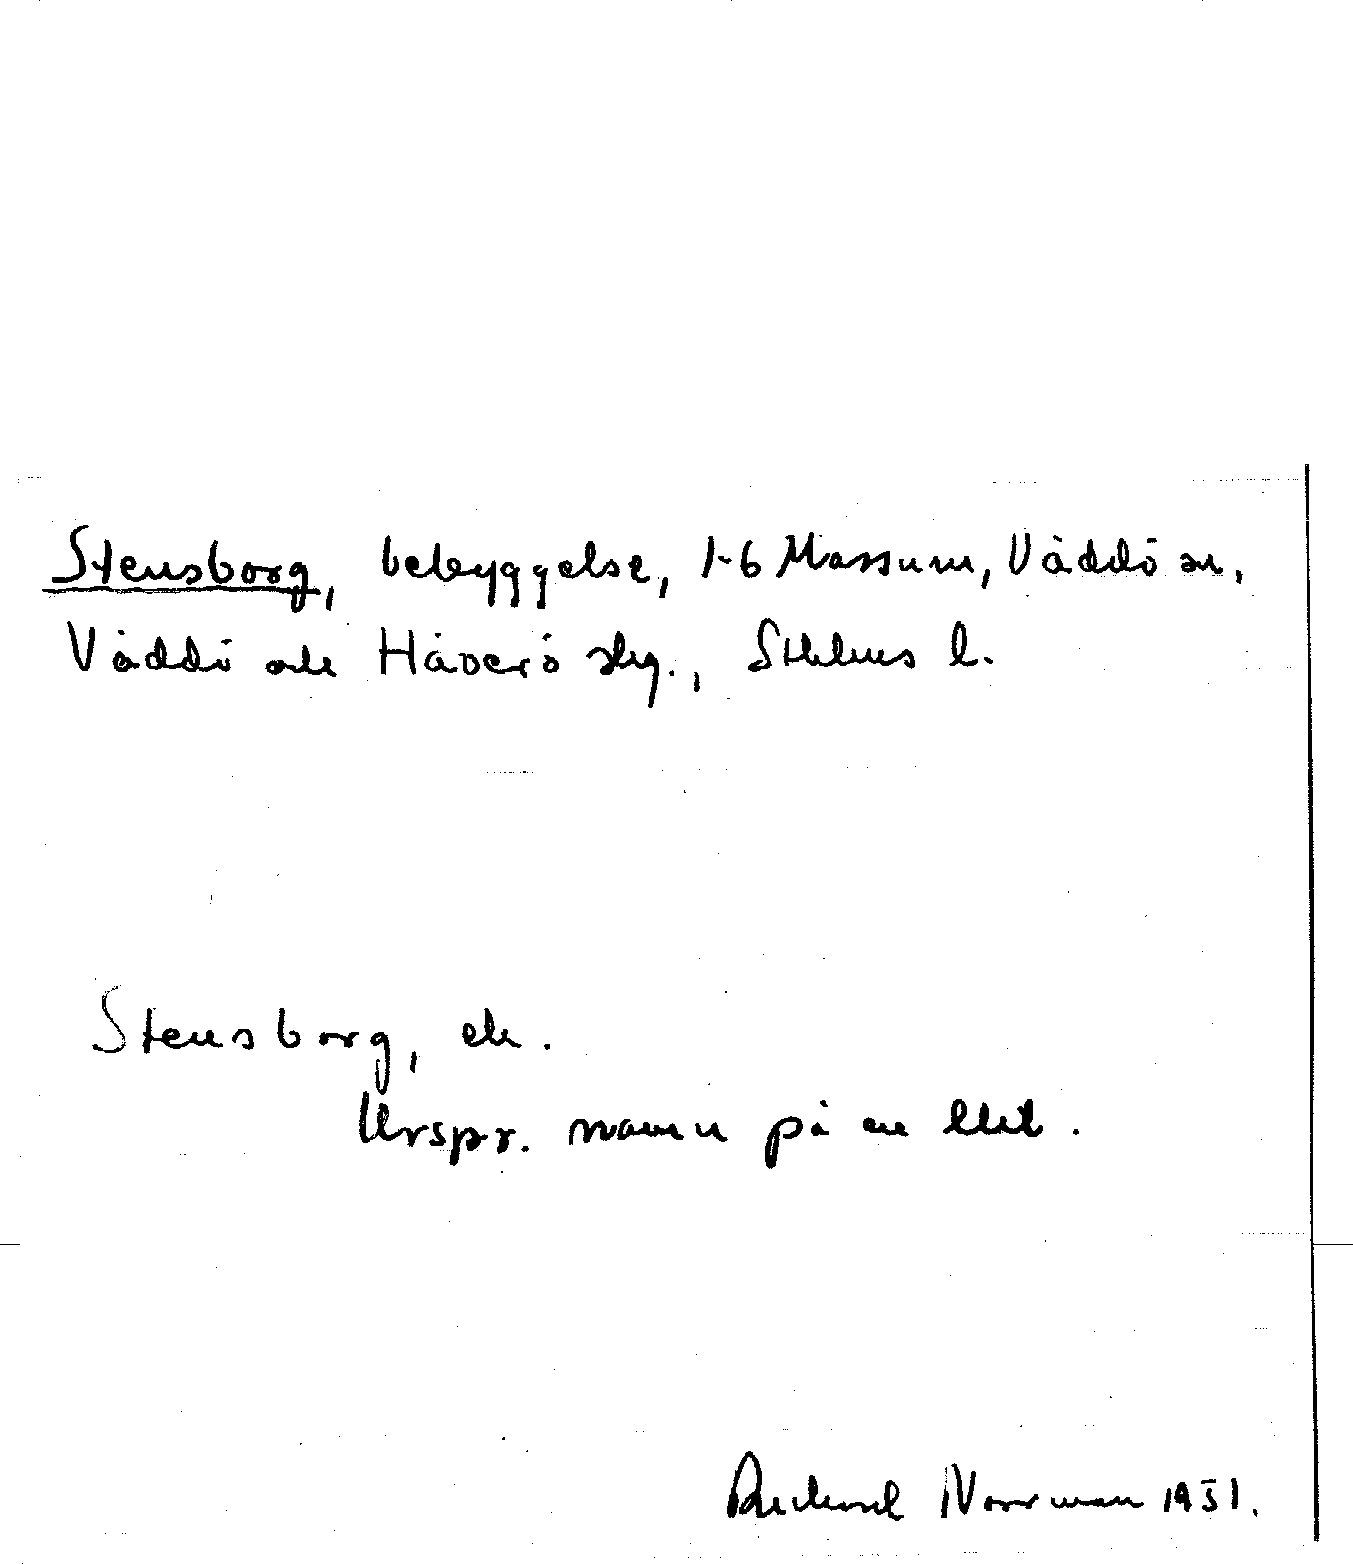 Stensborg, bebyggelse, 1-6 Massum, Väddö sn,
Väddö och Häverö skg., Sthlms l.
Stensborg, ek.
Urspr. namn på en
Richard Norrman 1951.